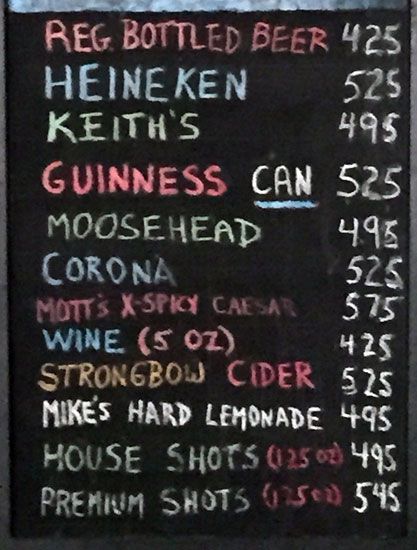 REG. BOTTLED BEER 425
HEINEKEN 525
KEITH'S 495
GUINNESS CAN 525
MOOSEHEAD 495
CORONA 525
MOTT'S X-SPICY CAESAR 575
WINE (5 OZ) 425
STRONGBOW CIDER 525
MIKE'S HARD LEMONADE 495
HOUSE SHOTS (125 OZ) 495
PREMIUM SHOTS (125 OZ) 545